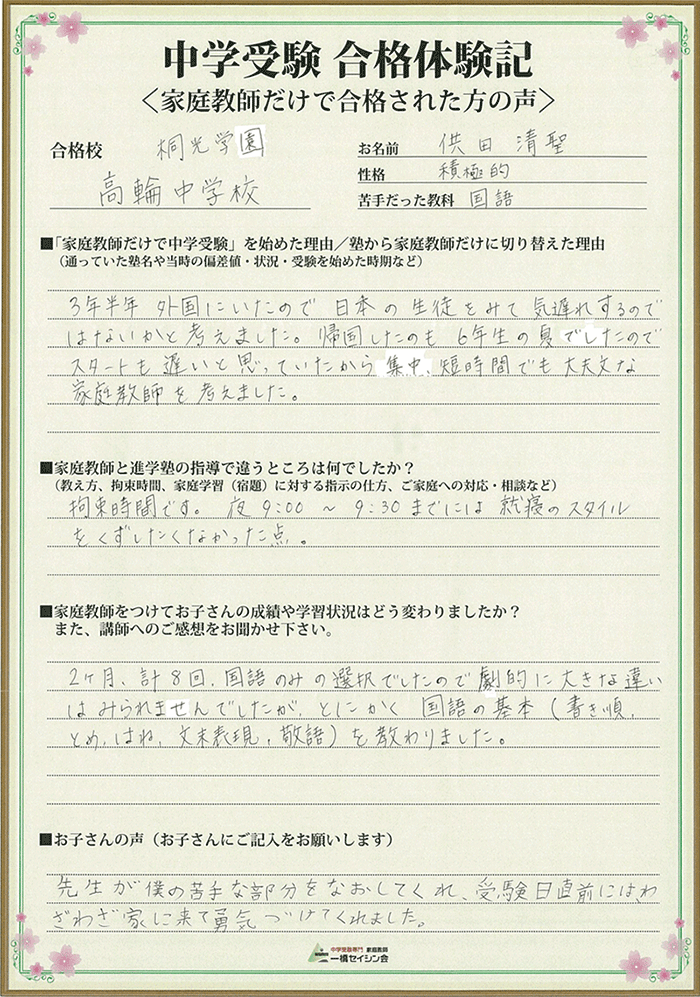 中学受験 合格体験記
＜家庭教師だけで合格された方の声＞
合格校 桐光学園
高輪中学校
お名前 供田 清聖
性格 積極的
苦手だった教科 国語
■「家庭教師だけで中学受験」を始めた理由／塾から家庭教師だけに切り替えた理由
（通っていた塾名や当時の偏差値・状況・受験を始めた時期など）
3年半年 外国にいたので 日本の生徒をみて 気遅れするので
はないかと考えました。帰国したのも 6年生の夏でしたので
スタートも遅いと思っていたから 集中、短時間でも大丈夫な
家庭教師を考えました。
■家庭教師と進学塾の指導で違うところは何でしたか？
（教え方、拘束時間、家庭学習（宿題）に対する指示の仕方、ご家庭への対応・相談など）
拘束時間です。 夜 9:00 ～ 9:30 までには 就寝のスタイル
をくずしたくなかった点。
■家庭教師をつけてお子さんの成績や学習状況はどう変わりましたか？
また、講師へのご感想をお聞かせ下さい。
2ヶ月、計8回、国語のみの選択でしたので劇的に大きな違い
はみられませんでしたが、とにかく 国語の基本（書き順、
とめ、はね、文末表現、敬語）を教わりました。
■お子さんの声（お子さんにご記入をお願いします）
先生が僕の苦手な部分をなおしてくれ、受験日直前には、わ
ざわざ家に来て勇気づけてくれました。
中学受験専門 家庭教師
一橋セイシン会